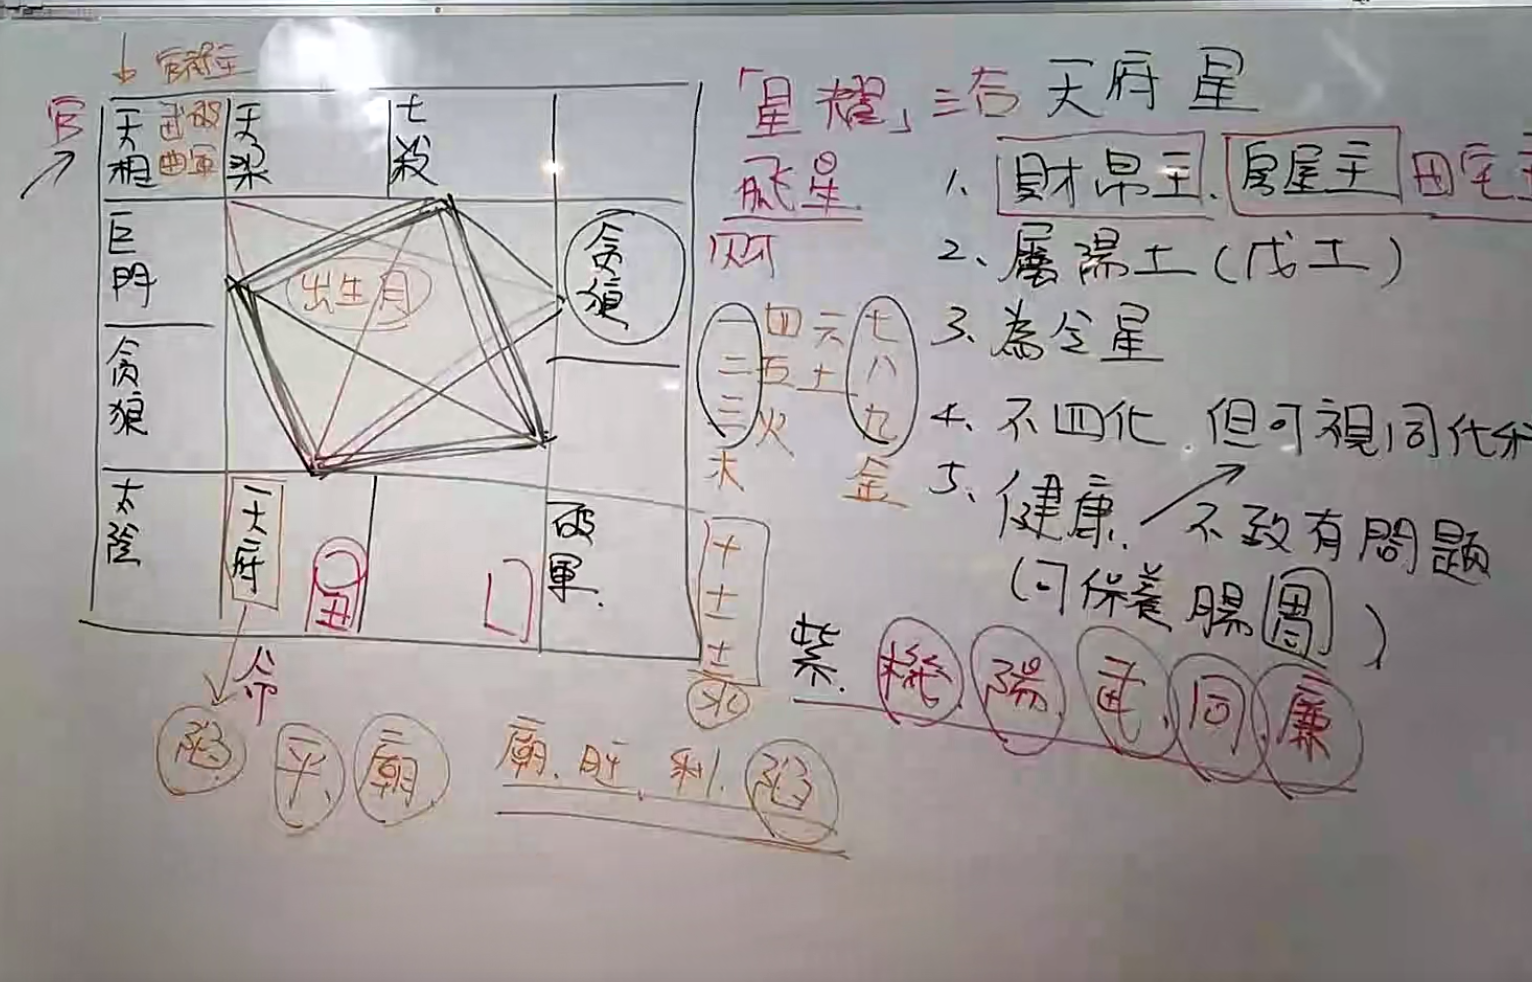 官祿主
官
天相
武曲
破軍
天梁
七殺
巨門
出生月
貪狼
貪狼
太陰
天府
丑
破軍.
命
陷
平
廟
廟.旺.利.陷
「星耀」三合
飛星
四
一二三木
四五火
六土
七八九金
十十一十二水
天府星
1、財帛主、房屋主 田宅主
2、屬陽土(戊土)
3、為令星
4、不四化.但可視同化科
5、健康.不致有問題
(可保養腸胃)
紫.機.陽.武.同.廉